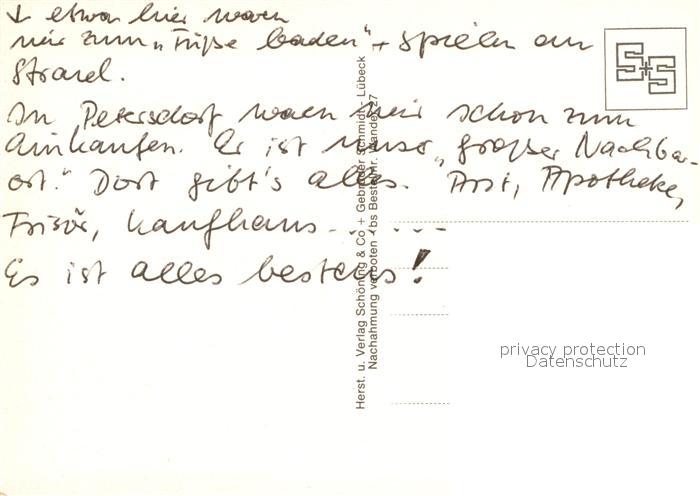 ↓ etwa hier waren
wir zum „Füße baden“ + spielen am
Strand.
In Petersdorf waren wir schon zum
Einkaufen. Er ist unser „großer Nachbar-
ort.“ Dort gibt's alles. Arzt, Apotheke,
Frisör, Kaufhaus - - - - - -
Es ist alles bestens!
S+S
Herst. u. Verlag Schöning & Co + Gebrüder Schmidt · Lübeck
Nachahmung verboten · bs Bestell-Nr. Wande 27
privacy protection
Datenschutz